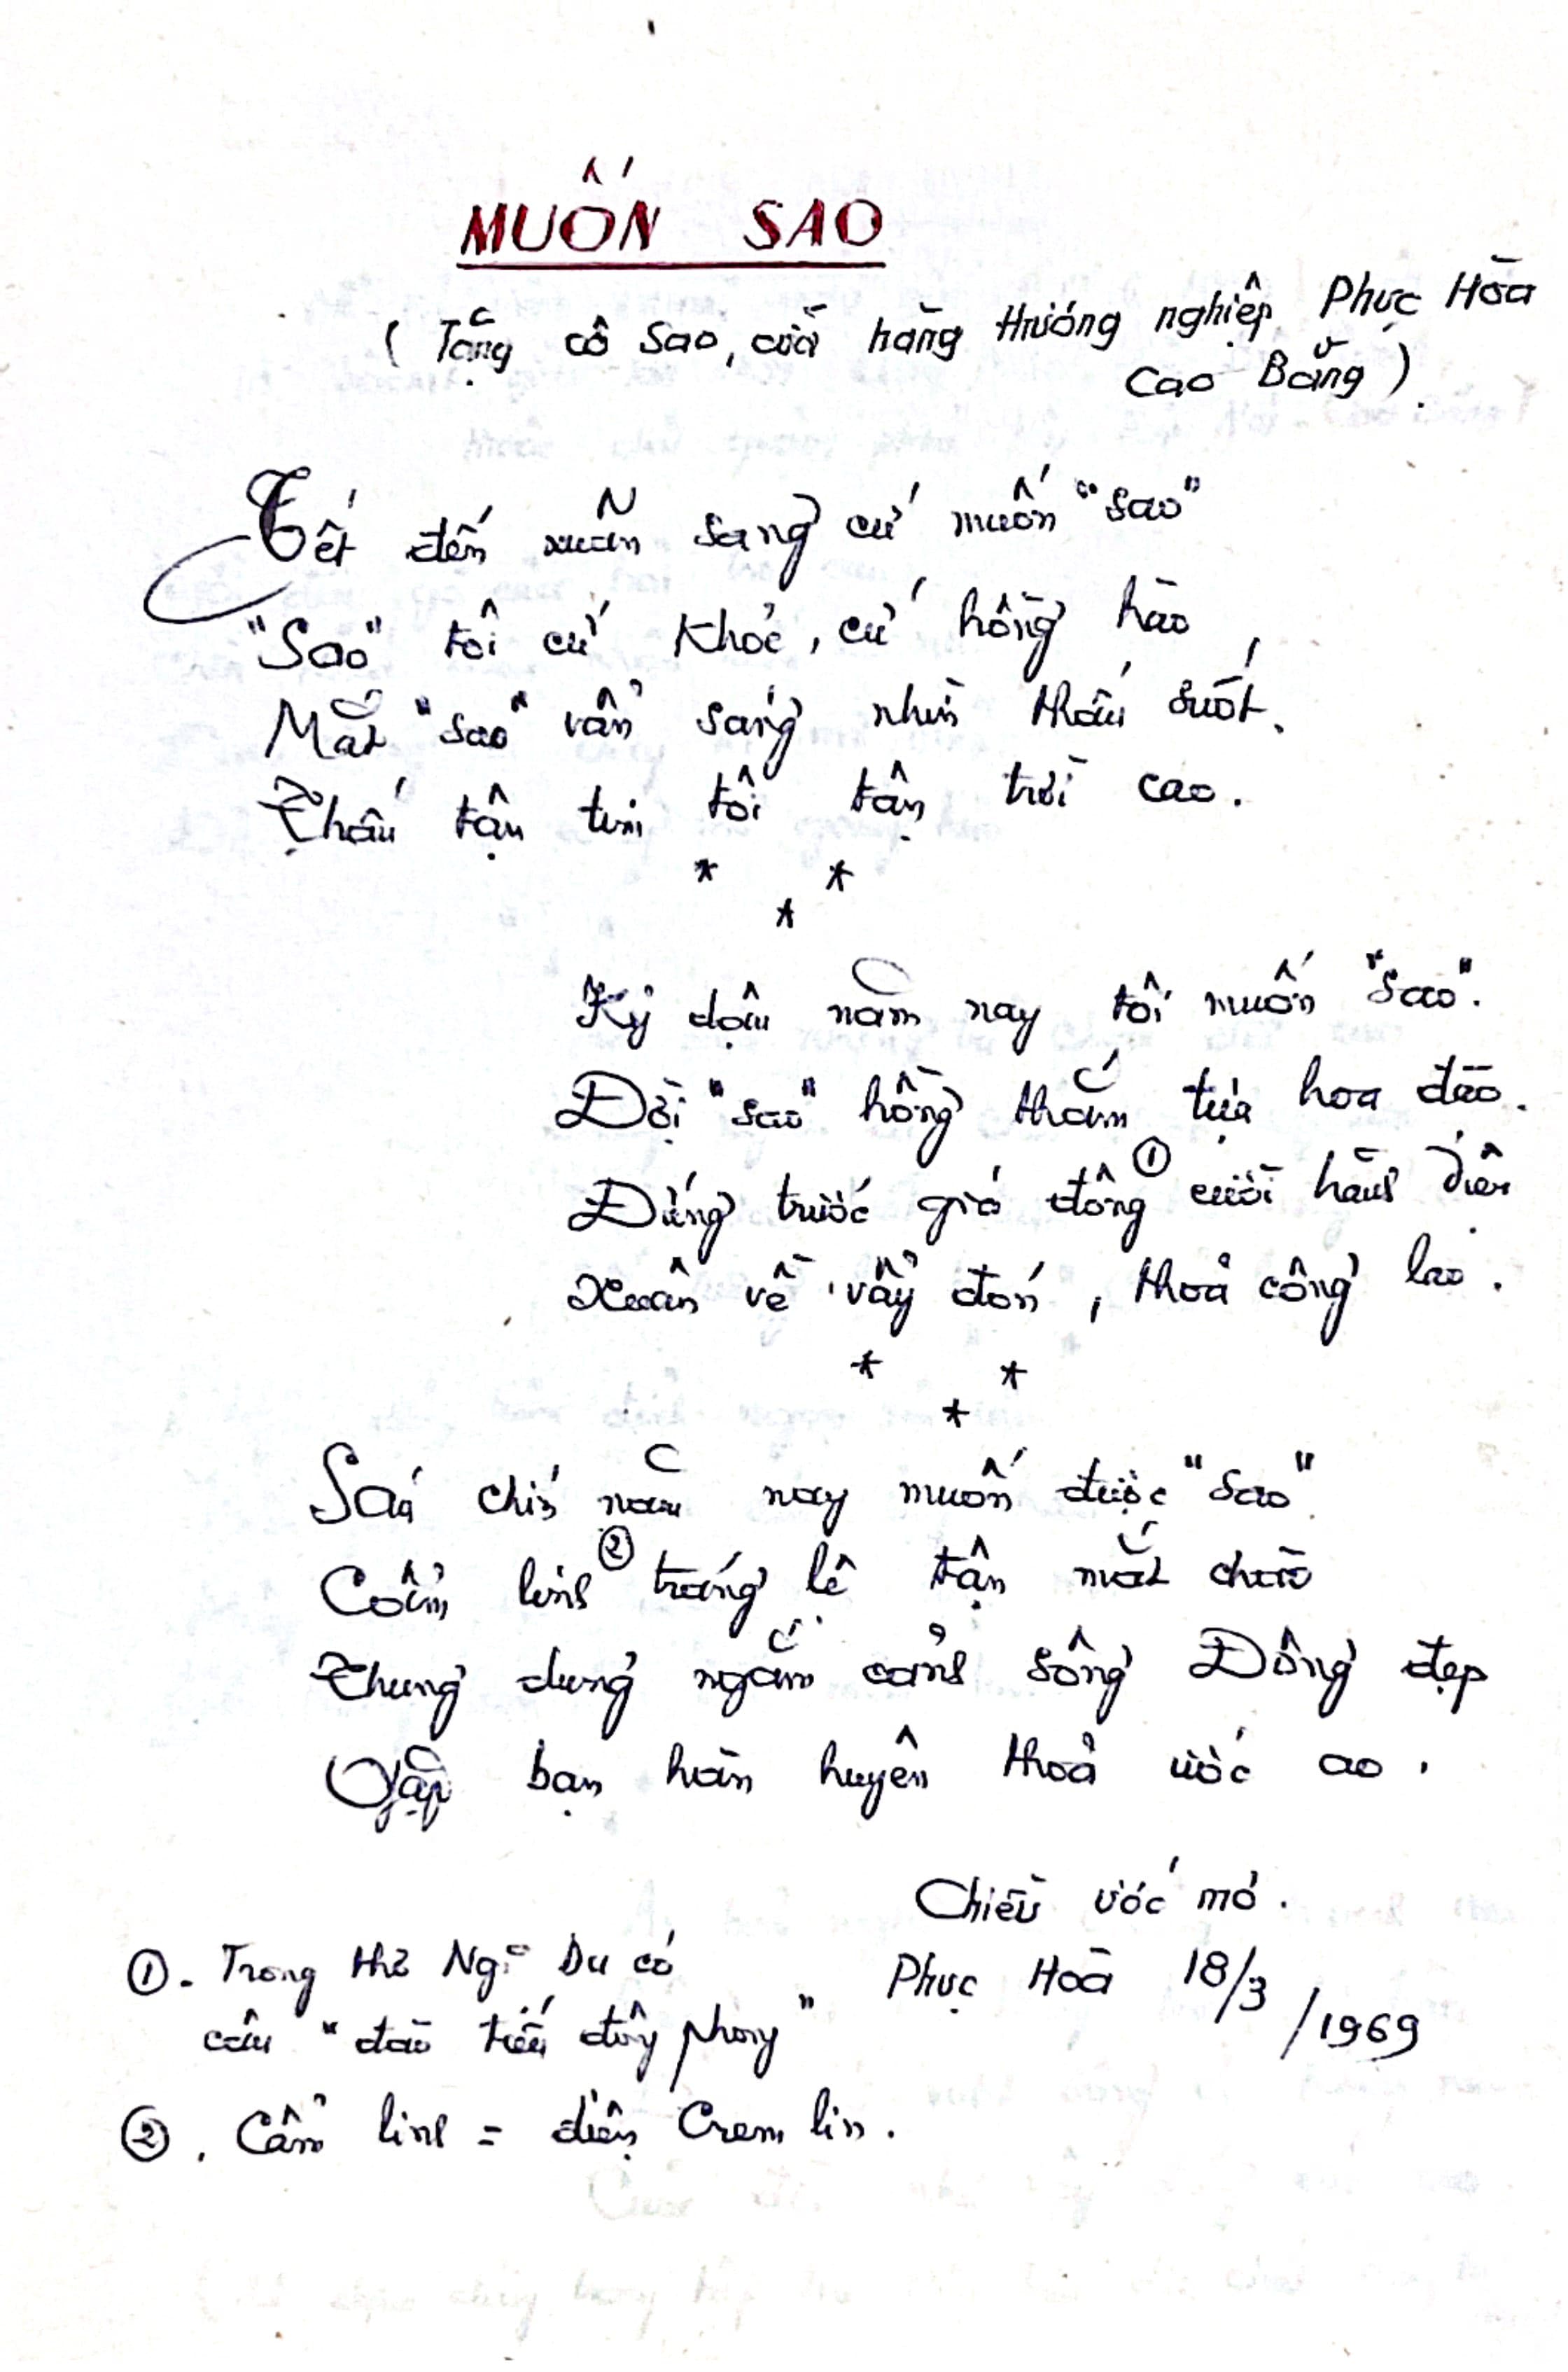 MUỐN SAO
(Tặng cô Sao, cửa hàng thương nghiệp Phục Hòa
Cao Bằng).
Tết đến xuân sang cứ muốn "sao"
"Sao" tôi cứ khỏe, cứ hồng hào,
Mắt "sao" vẫn sáng nhìn thấu suốt.
Thấu tận tim tôi tận trời cao.
* *
*
Kỷ dậu năm nay tôi muốn "sao".
Đời "sao" hồng thắm tựa hoa đào.
Đứng trước gió đông ① cười hàm tiếu
Xuân về vẫy đón, thoả công lao.
* *
*
Sáu chín năm nay muốn được "sao"
Cẩm linh ② tráng lệ tận mắt chào
Thung dung ngắm cảnh sông Đông đẹp
Gặp bạn hàn huyên thoả ước ao.
Chiều ước mơ.
Phục Hoà 18/3/1969
①. Trong thơ Ng. Du có
câu "đào tiếu đông phong"
②. Cẩm linh = điện Cremlin.